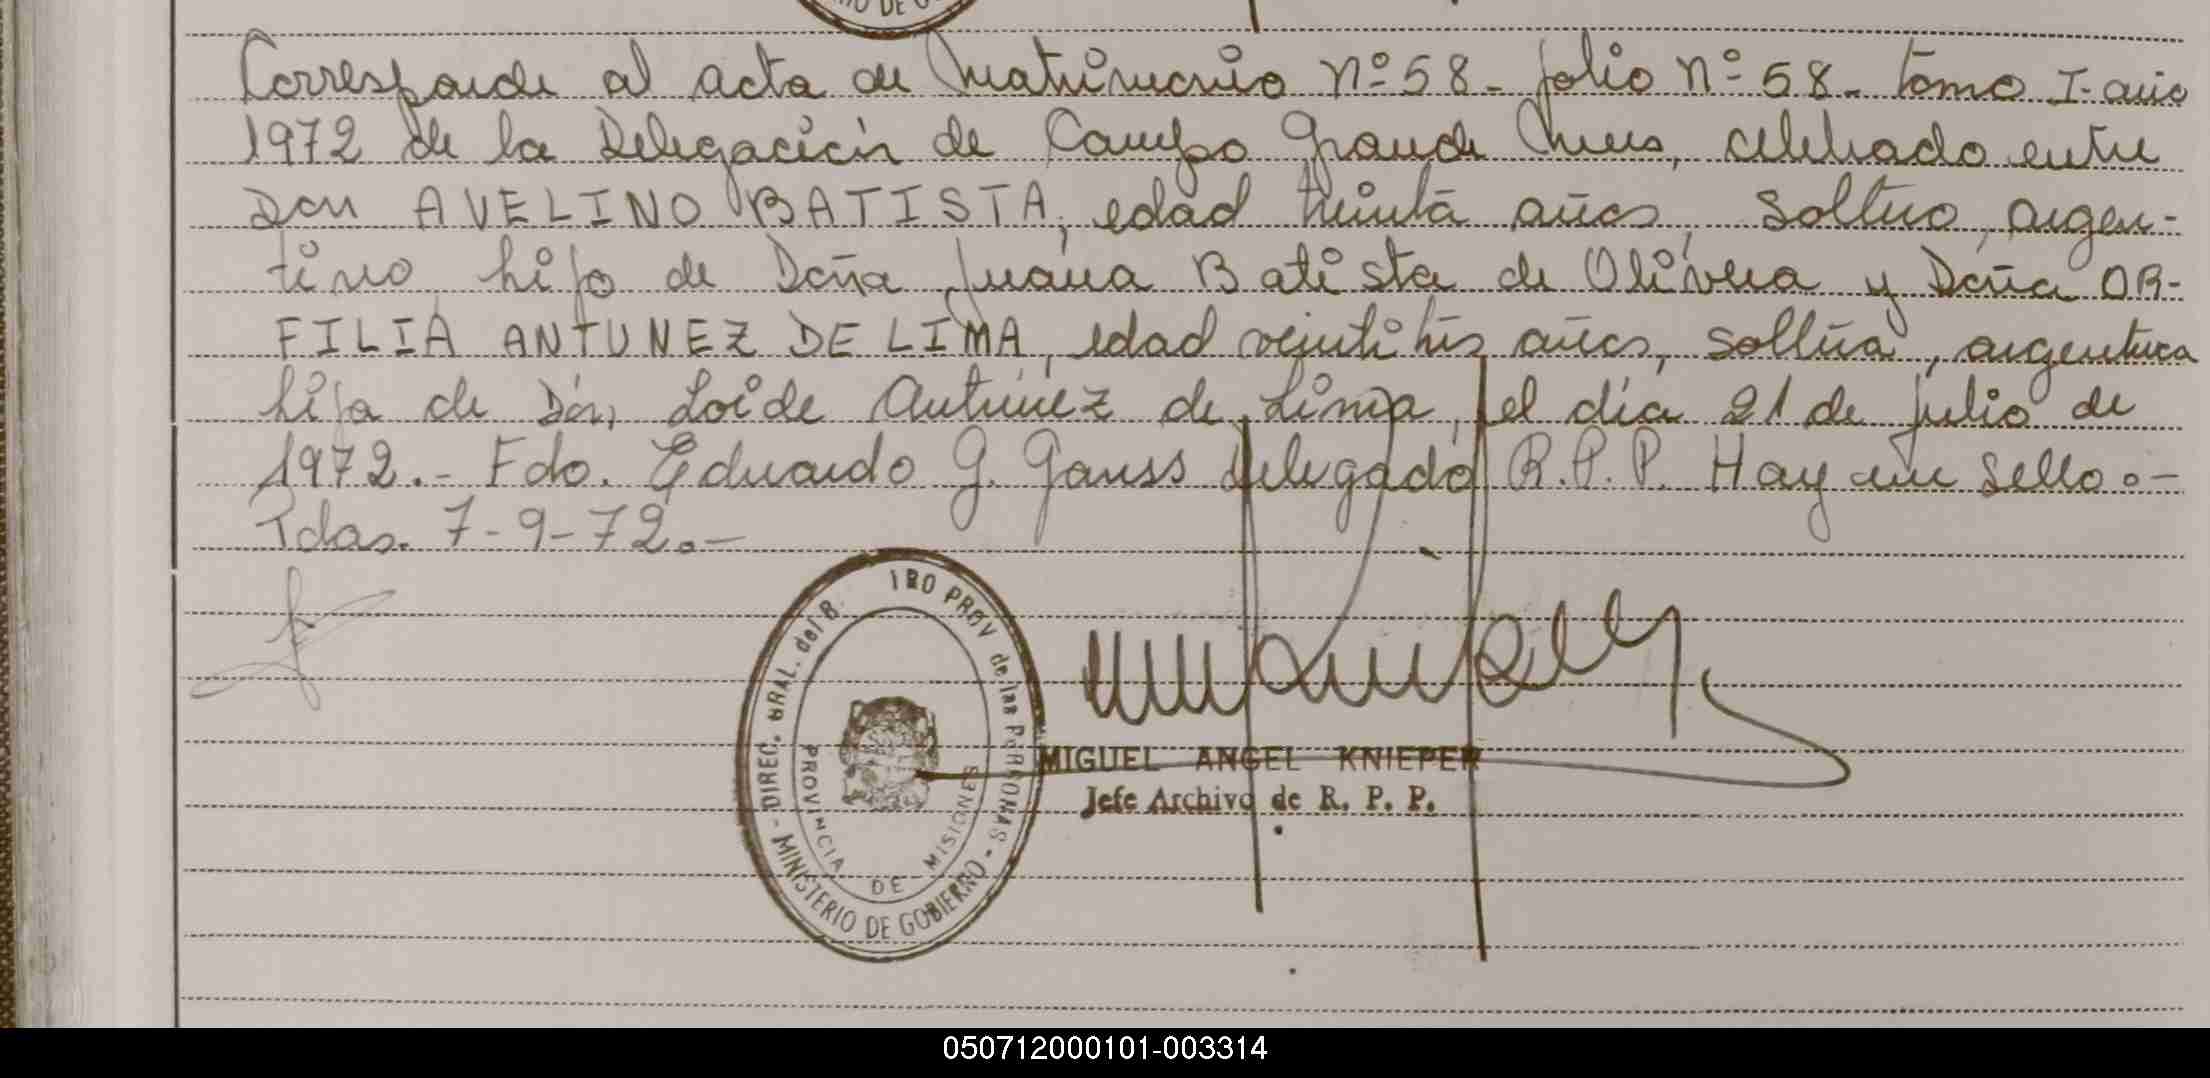 Corresponde al acta de Matrimonio nº 58 - folio nº 58 - Tomo I - año
1972 de la Delegación de Campo Grande Mnes, celebrado entre
Don AVELINO BATISTA, edad treinta años, soltero, argen-
tino hijo de Doña Juana Batista de Olivera y Doña OR-
FILIA ANTUNEZ DE LIMA, edad veintitrés años, soltera, argentina
hija de Don, Loide Antunez de Lima, el día 21 de julio de
1972.- Fdo. Eduardo G. Gauss delegado R.P.P. Hay un sello.-
Pdas. 7-9-72.-
DIREC. GRAL. del R. PROV de las PERSONAS - MINISTERIO DE GOBIERNO -
PROVINCIA DE MISIONES
MIGUEL ANGEL KNIEPER
Jefe Archivo de R. P. P.
050712000101-003314